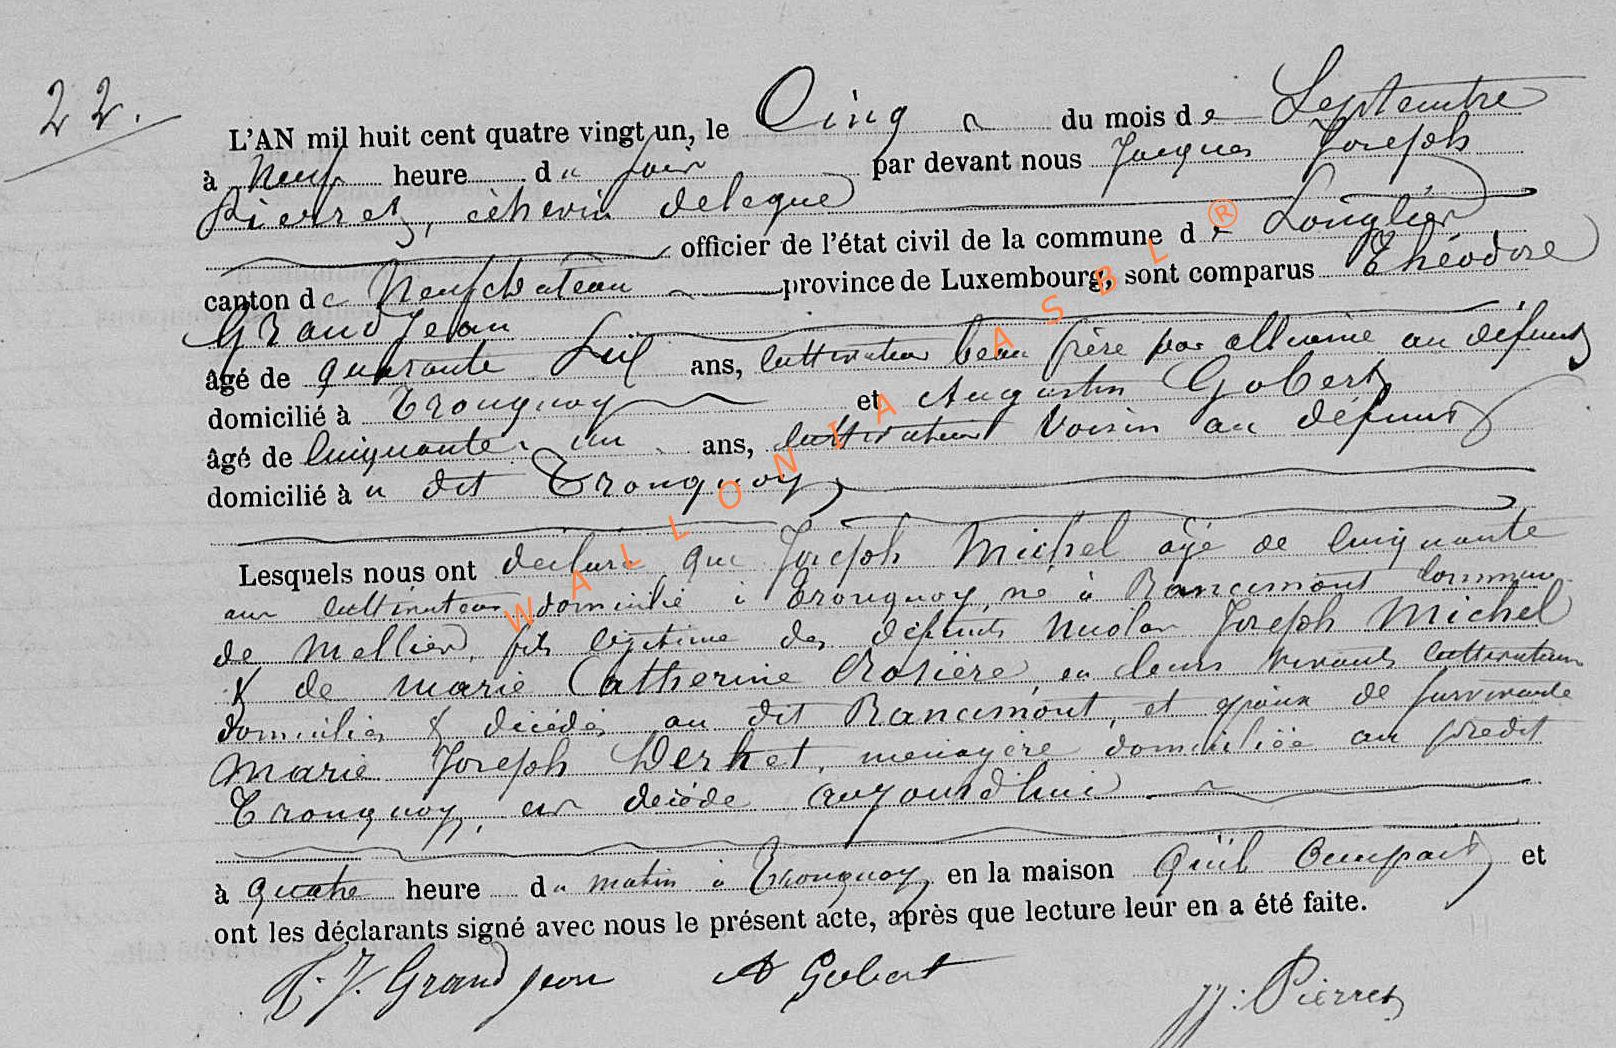 22.
L'AN mil huit cent quatre vingt un, le Cinq du mois de Septembre
à Neuf heure du soir par devant nous Jacques Joseph
Pierret, échevin délégué
officier de l'état civil de la commune de Longlier
canton de Neufchâteau province de Luxembourg, sont comparus Théodore
Grandjean
âgé de quarante six ans, cultivateur beau frère par alliance au défunt
domicilié à Tronquoy et Augustin Gobert
âgé de cinquante un ans, cultivateur voisin au défunt
domicilié à u dit Tronquoy,
Lesquels nous ont déclaré que Joseph Michel âgé de cinquante
ans cultivateur domicilié à Tronquoy, né à Rancimont commune
de Mellier, fils légitime des défunts Nicolas Joseph Michel
& de Marie Catherine Rosière, en leurs vivants cultivateurs
domiciliés & décédés au dit Rancimont, et époux de survivante
Marie Joseph Derhet, ménagère domiciliée au predit
Tronquoy, est décédé aujourd'hui
à quatre heure du matin à Tronquoy, en la maison qu'il occupait, et
ont les déclarants signé avec nous le présent acte, après que lecture leur en a été faite.
T. J. Grandjean A Gobert JJ. Pierret
WALLONIA ASBL ®